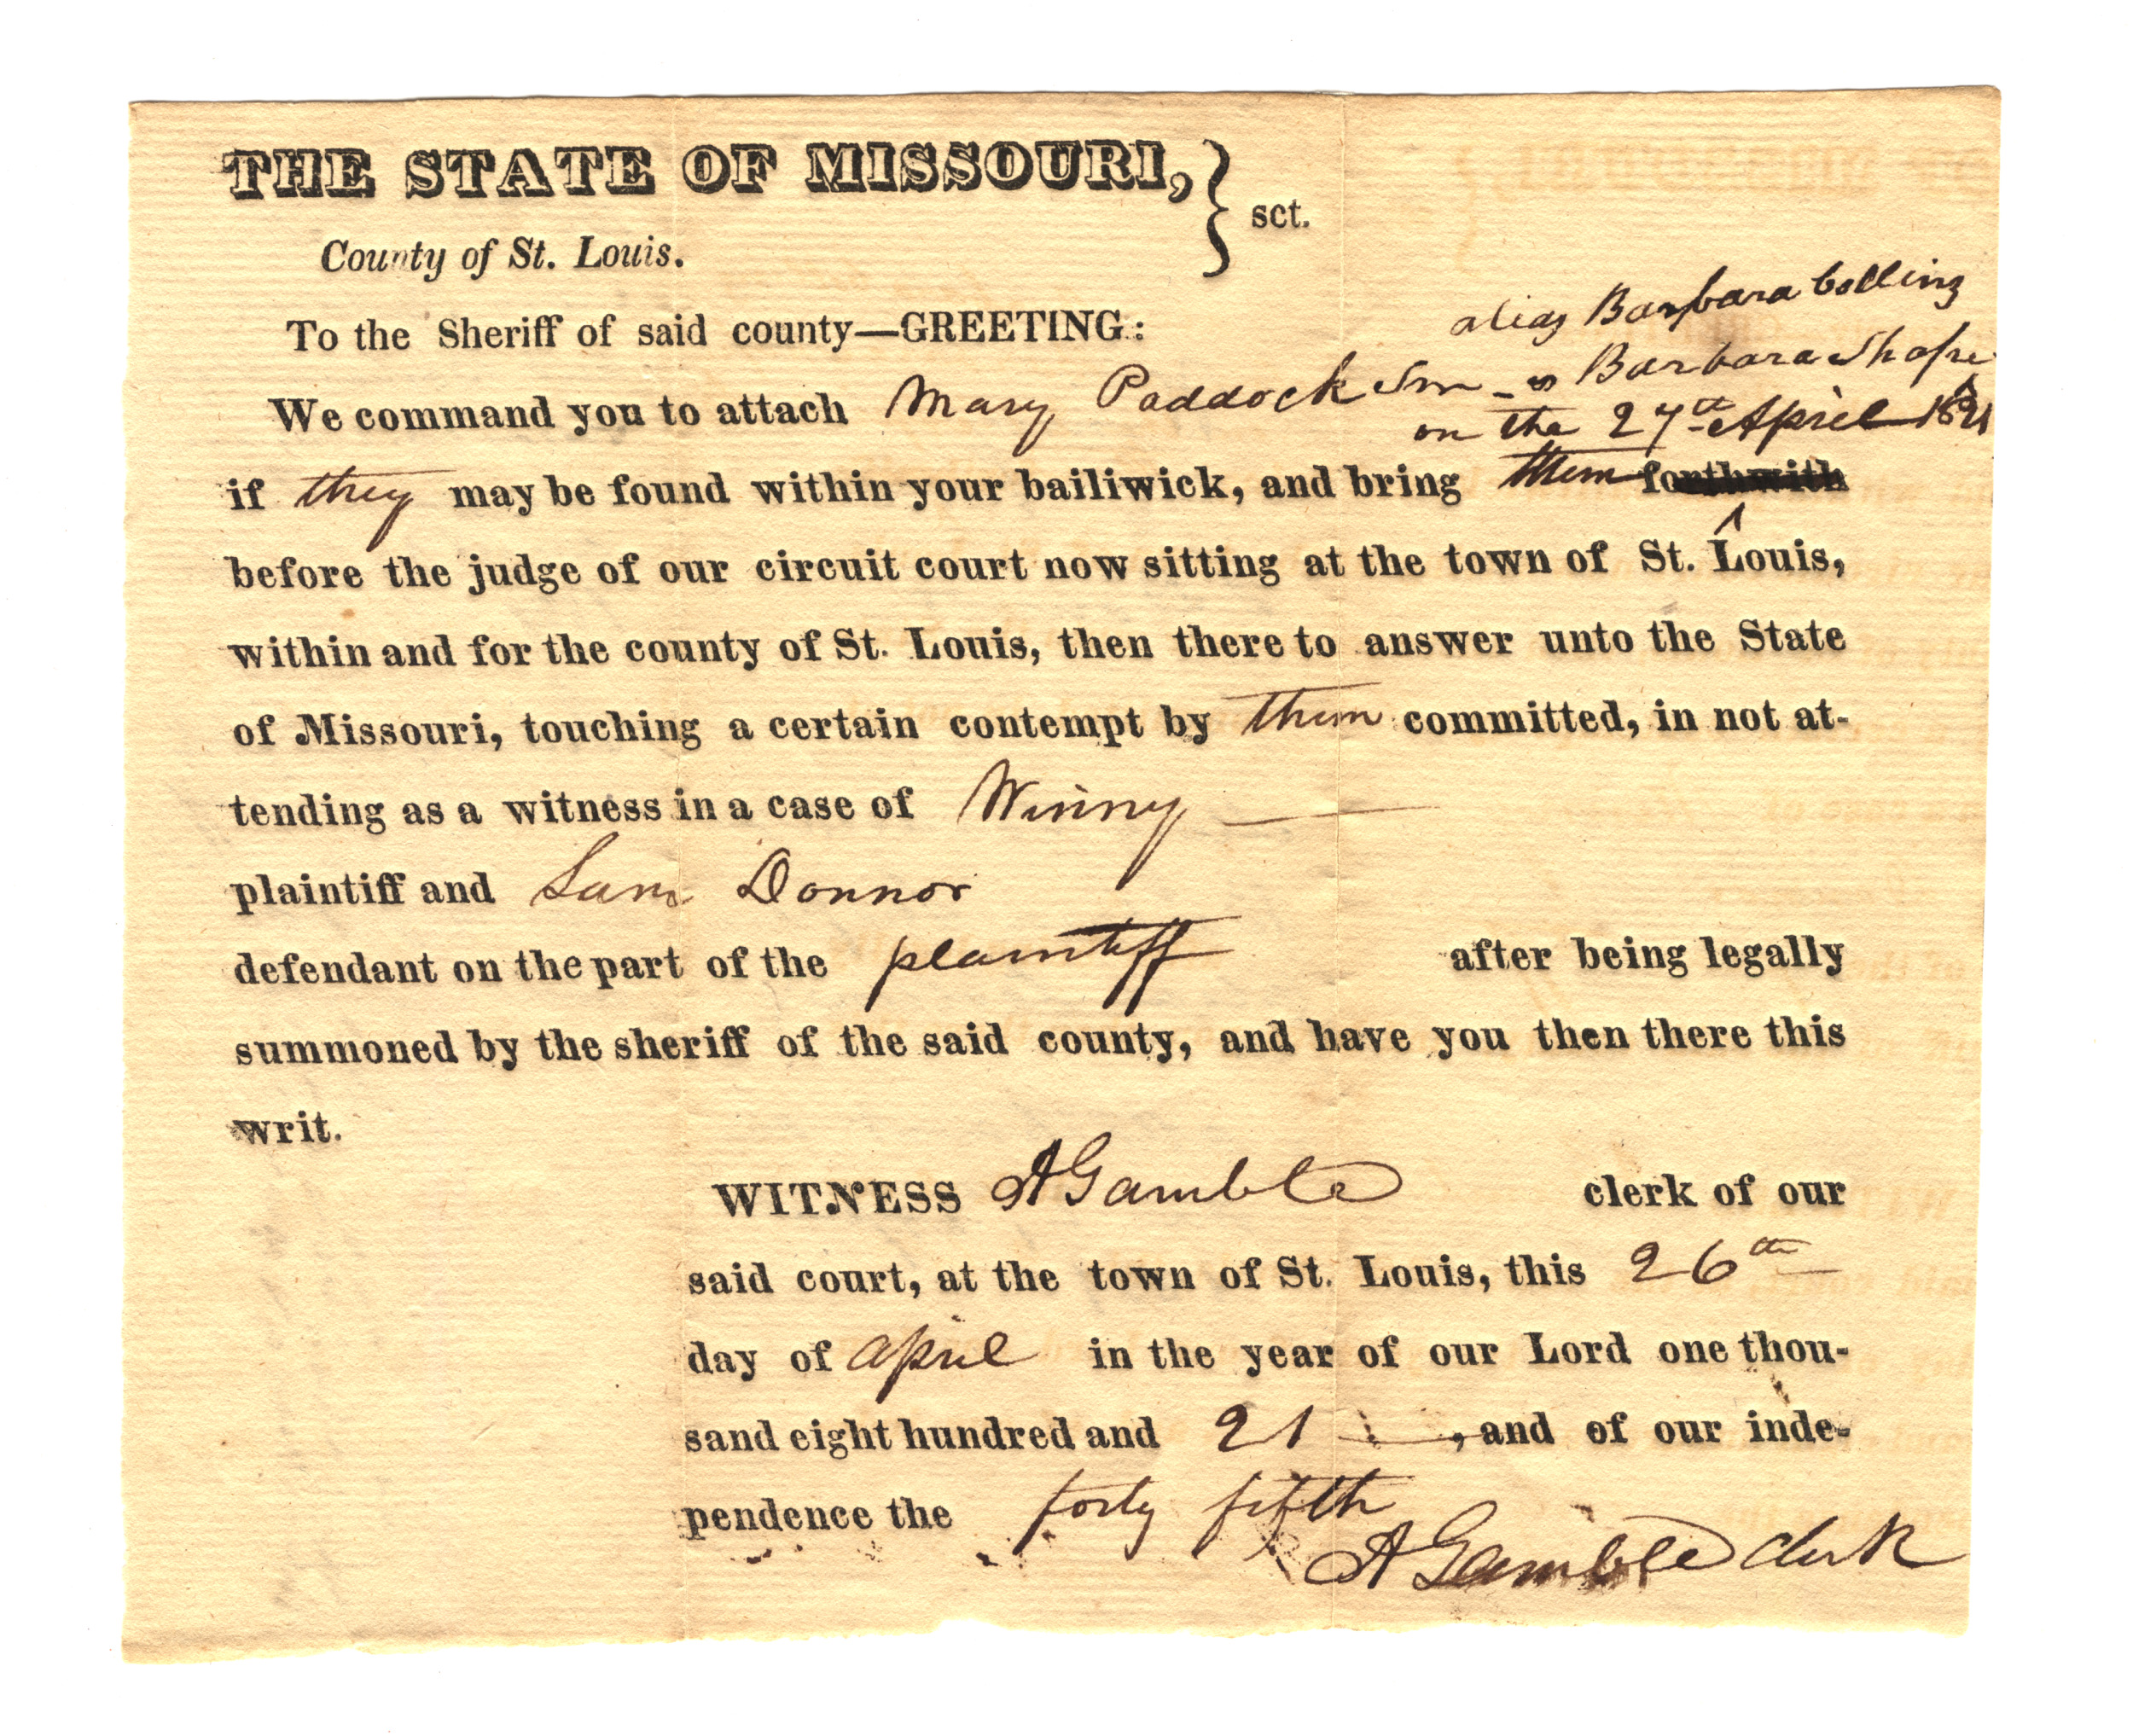 THE STATE OF MISSOURI, } sct.
County of St. Louis.
To the Sheriff of said county—GREETING:
alias Barbara Colling
We command you to attach Mary Paddock Snr & Barbara Shope
on the 27th April 1821
if they may be found within your bailiwick, and bring them forthwith
before the judge of our circuit court now sitting at the town of St. Louis,
within and for the county of St. Louis, then there to answer unto the State
of Missouri, touching a certain contempt by them committed, in not at-
tending as a witness in a case of Winny
plaintiff and Sam Donnor
defendant on the part of the plaintiff after being legally
summoned by the sheriff of the said county, and have you then there this
writ.
WITNESS A Gamble clerk of our
said court, at the town of St. Louis, this 26th
day of april in the year of our Lord one thou-
sand eight hundred and 21 , and of our inde-
pendence the forty fifth
A Gamble clerk